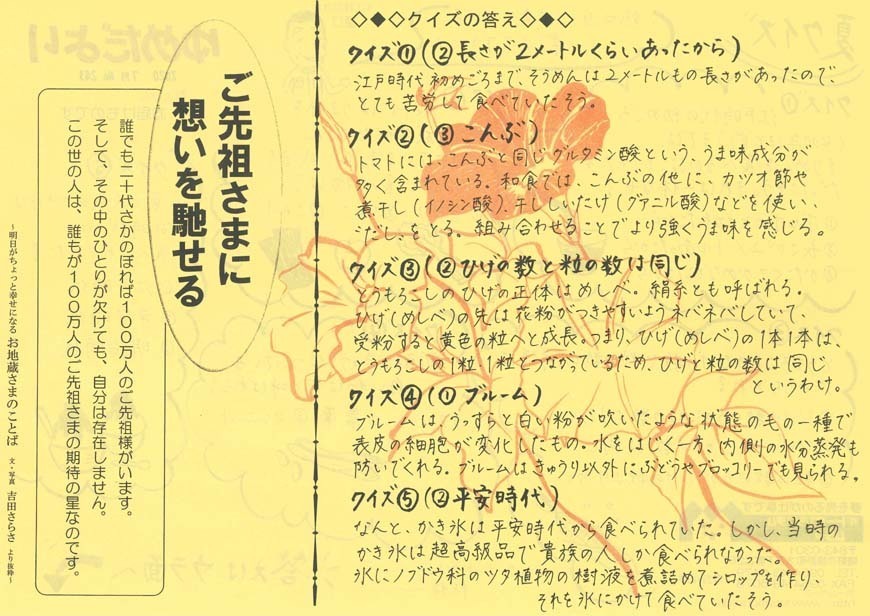 ◇◆◇クイズの答え◇◆◇
クイズ①(②長さが2メートルくらいあったから)
江戸時代初めごろまで、そうめんは2メートルもの長さがあったので、
とても苦労して食べていたそう。
クイズ②(③こんぶ)
トマトには、こんぶと同じグルタミン酸という、うま味成分が
多く含まれている。和食では、こんぶの他に、カツオ節や
煮干し(イノシン酸)、干ししいたけ(グアニル酸)などを使い、
"だし"をとる。組み合わせることでより強くうま味を感じる。
クイズ③(②ひげの数と粒の数は同じ)
とうもろこしのひげの正体はめしべ。絹糸とも呼ばれる。
ひげ(めしべ)の先は花粉がつきやすいようネバネバしていて、
受粉すると黄色の粒へと成長。つまり、ひげ(めしべ)の1本1本は、
とうもろこしの1粒1粒とつながっているため、ひげと粒の数は同じ
というわけ。
クイズ④(①ブルーム)
ブルームは、うっすらと白い粉が吹いたような状態の毛の一種で
表皮の細胞が変化したもの。水をはじく一方、内側の水分蒸発も
防いでくれる。ブルームはきゅうり以外にぶどうやブロッコリーでも見られる。
クイズ⑤(②平安時代)
なんと、かき氷は平安時代から食べられていた。しかし、当時の
かき氷は超高級品で貴族の人しか食べられなかった。
氷にノブドウ科のツタ植物の樹液を煮詰めてシロップを作り、
それを氷にかけて食べていたそう。
ご先祖さまに
想いを馳せる
誰でも二十代さかのぼれば100万人のご先祖様がいます。
そして、その中のひとりが欠けても、自分は存在しません。
この世の人は、誰もが100万人のご先祖さまの期待の星なのです。
~明日がちょっと幸せになる お地蔵さまのことば 文・写真 吉田さらさ より抜粋~